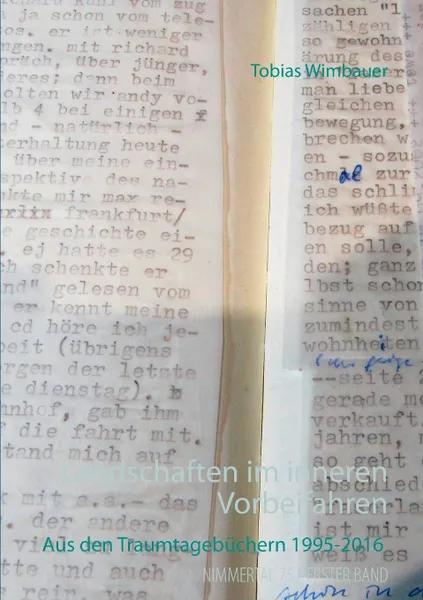 Tobias Wimbauer
ichard kuhl vom zug
ja schon vom tele-
os. er ist weniger
ngen. mit richard
präch, über jünger,
ieres; dann beim
olten wir andy vo-
lb 4 bei einigen f
nd - natürlich -
terhaltung heute
über meine ein-
spektive des na-
nkte mir max re-
frankfurt/
e geschichte ei-
. ej hatte es 29
ch schenkte er
and" gelesen vom
er kennt meine
cd höre ich je-
beit (übrigens
rgen der letzte
e dienstag). b
nhof, gab ihm
f die fahrt mit.
tand mich auf
k mit a.s.- das
. der andere
tte und auch
sachen "l
zähligen
so gewohn
ärung des
man liebe
gleichen
bewegung,
brechen w
en - sozu
chmal zur
das schlin
ich wüßte
bezug auf
en solle,
den; ganz
lbst schon
sinne von
zumindest
wohnheiten
--seite 2
gerade me
verkauft.
jahren, n
so geht
abschied
ist mir
weiß es
Landschaften im inneren
Vorbeifahren
Aus den Traumtagebüchern 1995-2016
NIMMERTAL 75 | ERSTER BAND